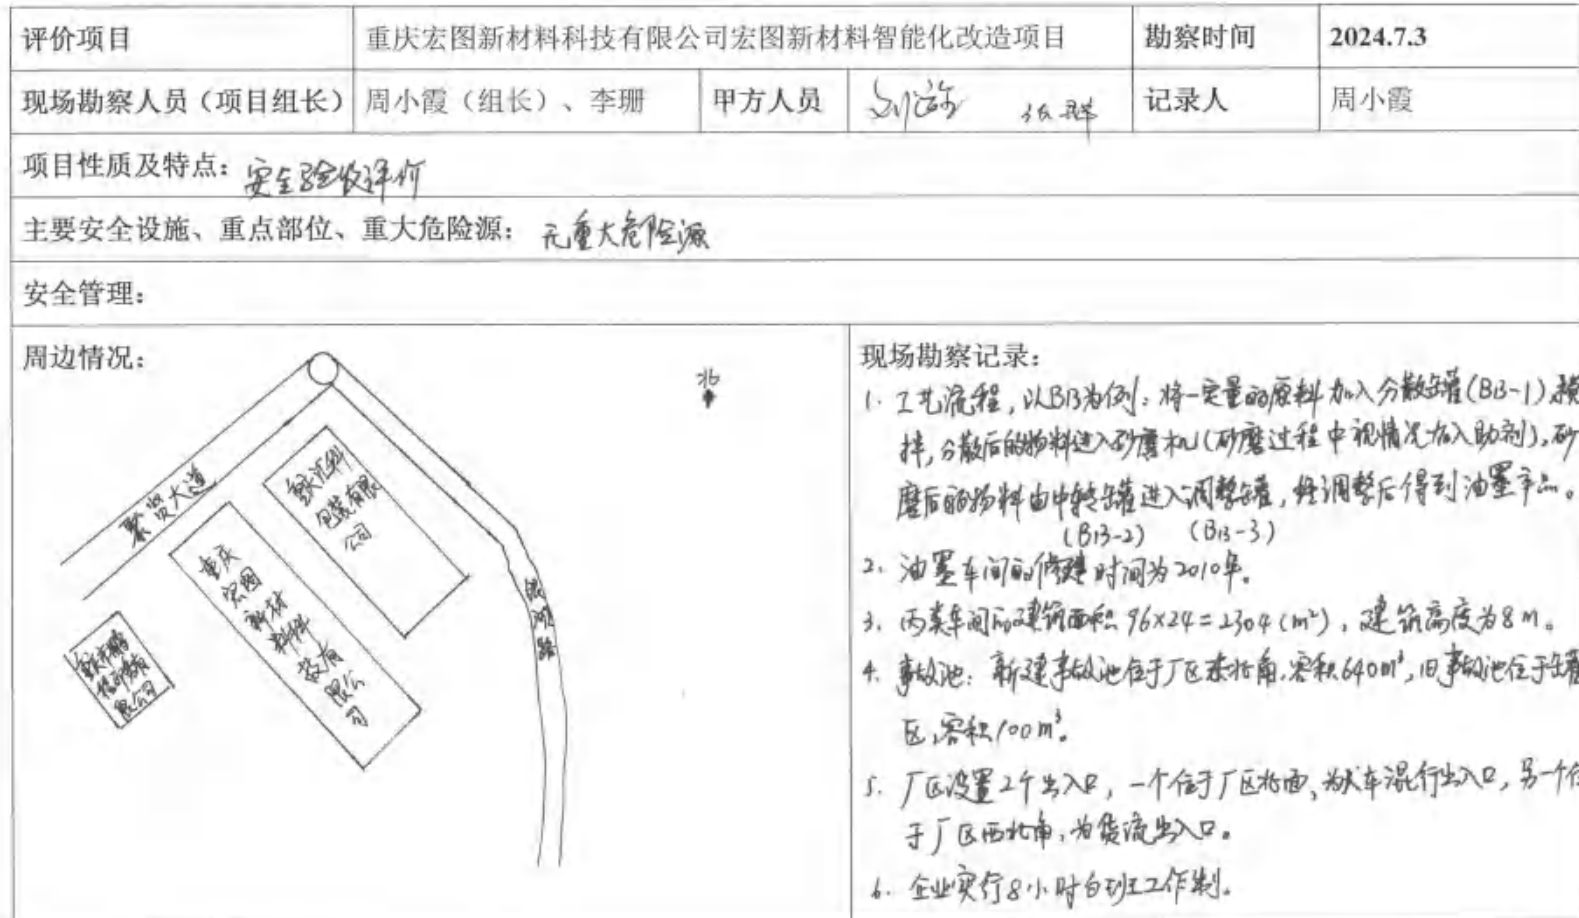 评价项目 重庆宏图新材料科技有限公司宏图新材料智能化改造项目 勘察时间 2024.7.3
现场勘察人员（项目组长） 周小霞（组长）、李珊 甲方人员 记录人 周小霞
项目性质及特点：安全验收评价
主要安全设施、重点部位、重大危险源：无重大危险源
安全管理：
周边情况：
北
聚贤大道
包装有限
公司
重庆
宏图
新材
料科
技有
限公
司
限公司
现场勘察记录：
1. 工艺流程，以B13为例：将一定量的原料加入分散罐(B13-1)预
拌，分散后的物料进入砂磨机(砂磨过程中视情况加入助剂)，砂
磨后的物料由中转罐进入调整罐，经调整后得到油墨产品。
(B13-2) (B13-3)
2. 油墨车间的修建时间为2010年。
3. 丙类车间的建筑面积 96×24=2304(m²)，建筑高度为8m。
4. 事故池：新建事故池位于厂区东北角，容积640m³，旧事故池位于罐
区，容积100m³。
5. 厂区设置2个出入口，一个位于厂区北面，为人车混行出入口，另一个位
于厂区西北角，为货流出入口。
6. 企业实行8小时白班工作制。